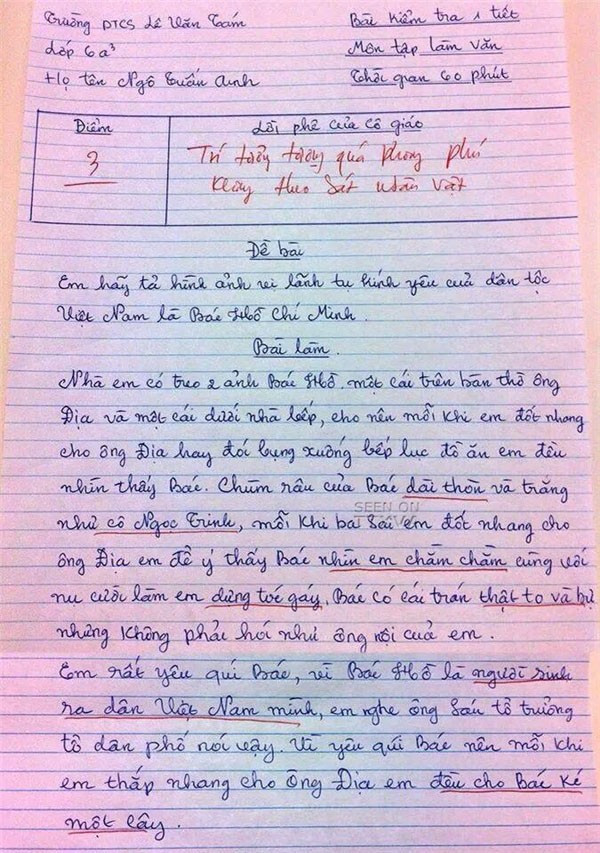 Trường PTCS Lê Văn Tám
Bài kiểm tra 1 tiết
Lớp 6a³
Môn tập làm văn
Họ tên Ngô Tuấn Anh
Thời gian 60 phút
Điểm
Lời phê của cô giáo
3
Trí tưởng tượng quá phong phú
không theo sát nhân vật
Đề bài
Em hãy tả hình ảnh vị lãnh tụ kính yêu của dân tộc
Việt Nam là Bác Hồ Chí Minh.
Bài làm.
Nhà em có treo 2 ảnh Bác Hồ. một cái trên bàn thờ ông
Địa và một cái dưới nhà bếp, cho nên mỗi khi em đốt nhang
cho ông Địa hay đói bụng xuống bếp lục đồ ăn em đều
nhìn thấy Bác. Chùm râu của Bác dài thòn và trắng
như cô Ngọc Trinh, mỗi khi ba sai em đốt nhang cho
ông Địa em để ý thấy Bác nhìn em chằm chằm cùng với
nụ cười làm em dừng toé gáy. Bác có cái trán thật to và bự
nhưng không phải hói như ông nội của em.
Em rất yêu quí Bác, vì Bác Hồ là người sinh
ra dân Việt Nam mình, em nghe ông Sáu tổ trưởng
tổ dân phố nói vậy. Vì yêu quí Bác nên mỗi khi
em thắp nhang cho Ông Địa em đều cho Bác ké
một cây.
SEEN ON